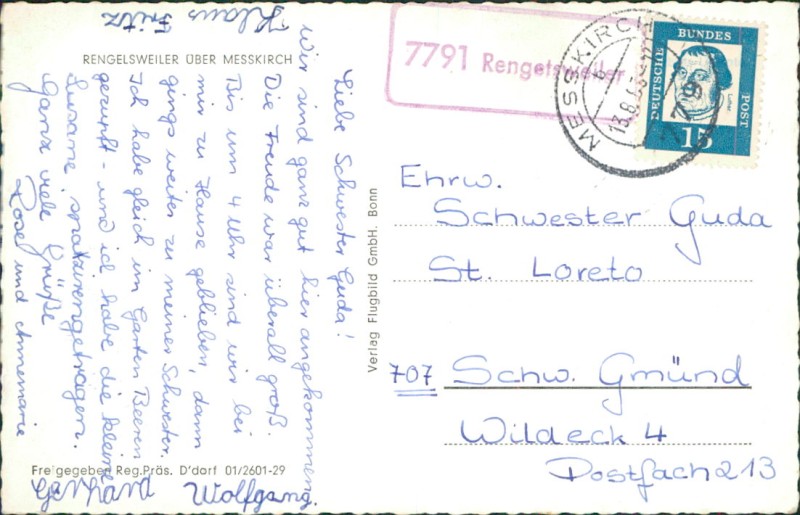 Klaus Fritz
RENGELSWEILER ÜBER MESSKIRCH
Liebe Schwester Guda!
Wir sind ganz gut hier angekommen
Die Freude war überall groß.
Bis um 4 Uhr sind wir bei
mir zu Hause geblieben, dann
gings weiter zu meiner Schwester.
Ich habe gleich im Garten Beeren
gerupft - und ich habe die kleine
Susanne spatzierengetragen.
Ganz viele Grüße
Rose und Annemarie
Gerhard Wolfgang.
Freigegeben Reg.Präs. D'dorf 01/2601-29
Verlag Flugbild GmbH. Bonn
7791 Rengetsweiler
MESSKIRCH
13.8.6
779
DEUTSCHE BUNDES POST
Luther
15
Ehrw.
Schwester Guda
St. Loreto
707 Schw. Gmünd
Wildeck 4
Postfach 213